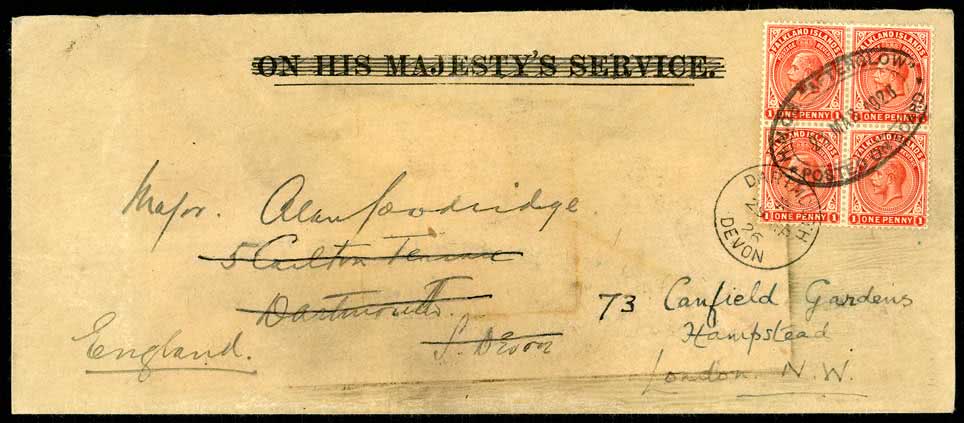 ON HIS MAJESTY'S SERVICE.
FALKLAND ISLANDS
1 ONE PENNY 1
FALKLAND ISLANDS
1 ONE PENNY 1
FALKLAND ISLANDS
1 ONE PENNY 1
FALKLAND ISLANDS
1 ONE PENNY 1
POSTED ON BOARD
MAR 1926
DARTMOUTH
26
DEVON
Major. Alan
5 Carlton Terrace
Dartmouth.
S. Devon
England.
73 Canfield Gardens
Hampstead
London. N.W.